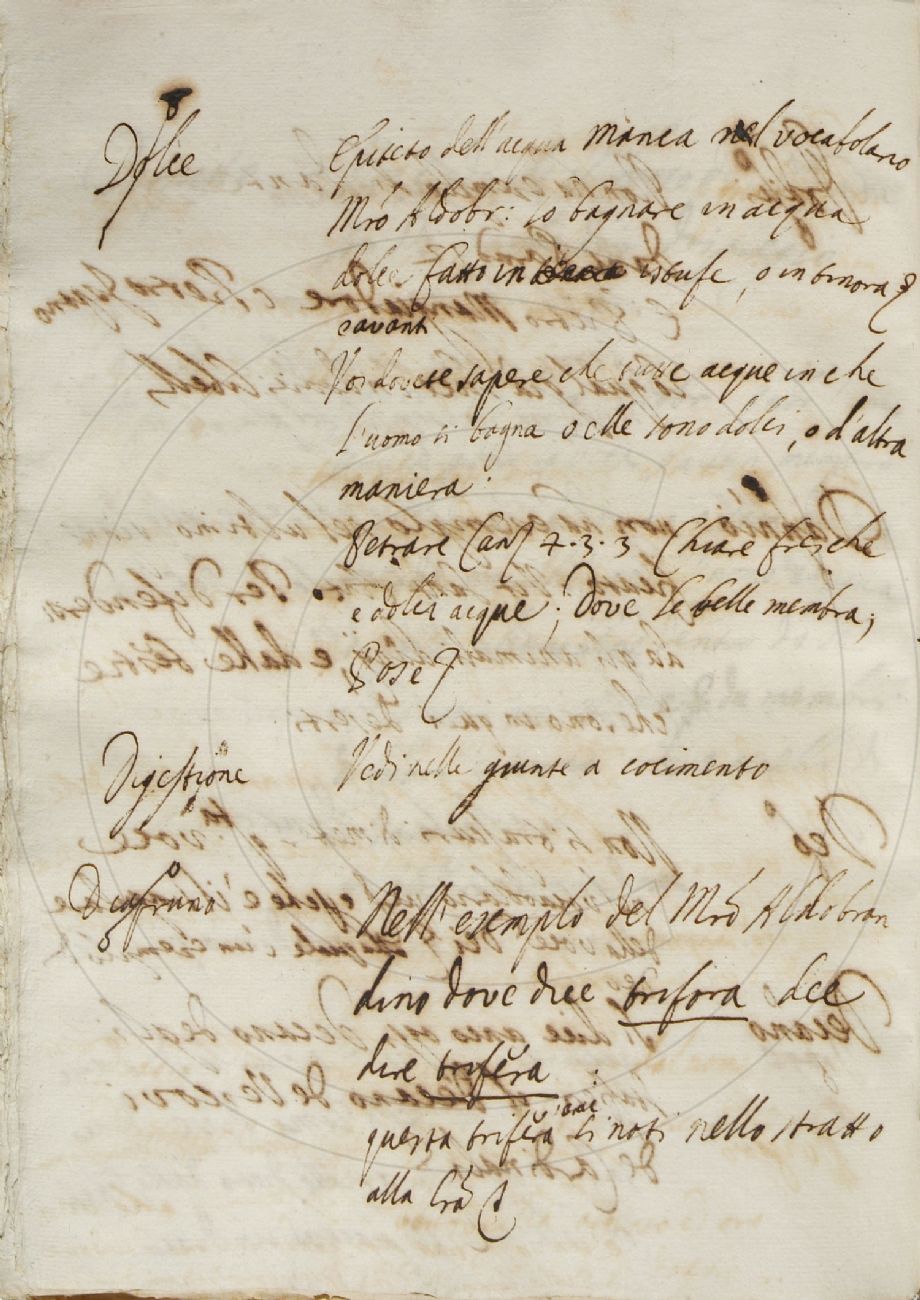 Dolce
Epiteto dell'acqua manca nel vocabolario
Mro Aldobr: lo bagnare in acqua
dolce fatto in istufe, o in tinora
avanti
Voi dovete sapere che tutte acque in che
l'uomo si bagna o elle sono dolci, o d'altra
maniera.
Petrarc Canz 4.3.3 Chiare fresche
e dolci acque; Dove le belle membra;
Pose
Digestione
Vedi nelle giunte a cocimento
Diafinno
Nell'esemplo del Mro Aldobran
dino dove dice trifora dee
dire trifèra.
questa trifèra si noti nello stratto
alla lra